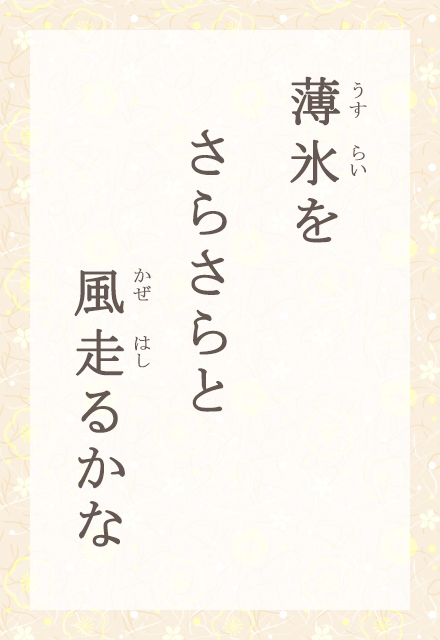 薄氷を
うす らい
さらさらと
風走るかな
かぜ はし